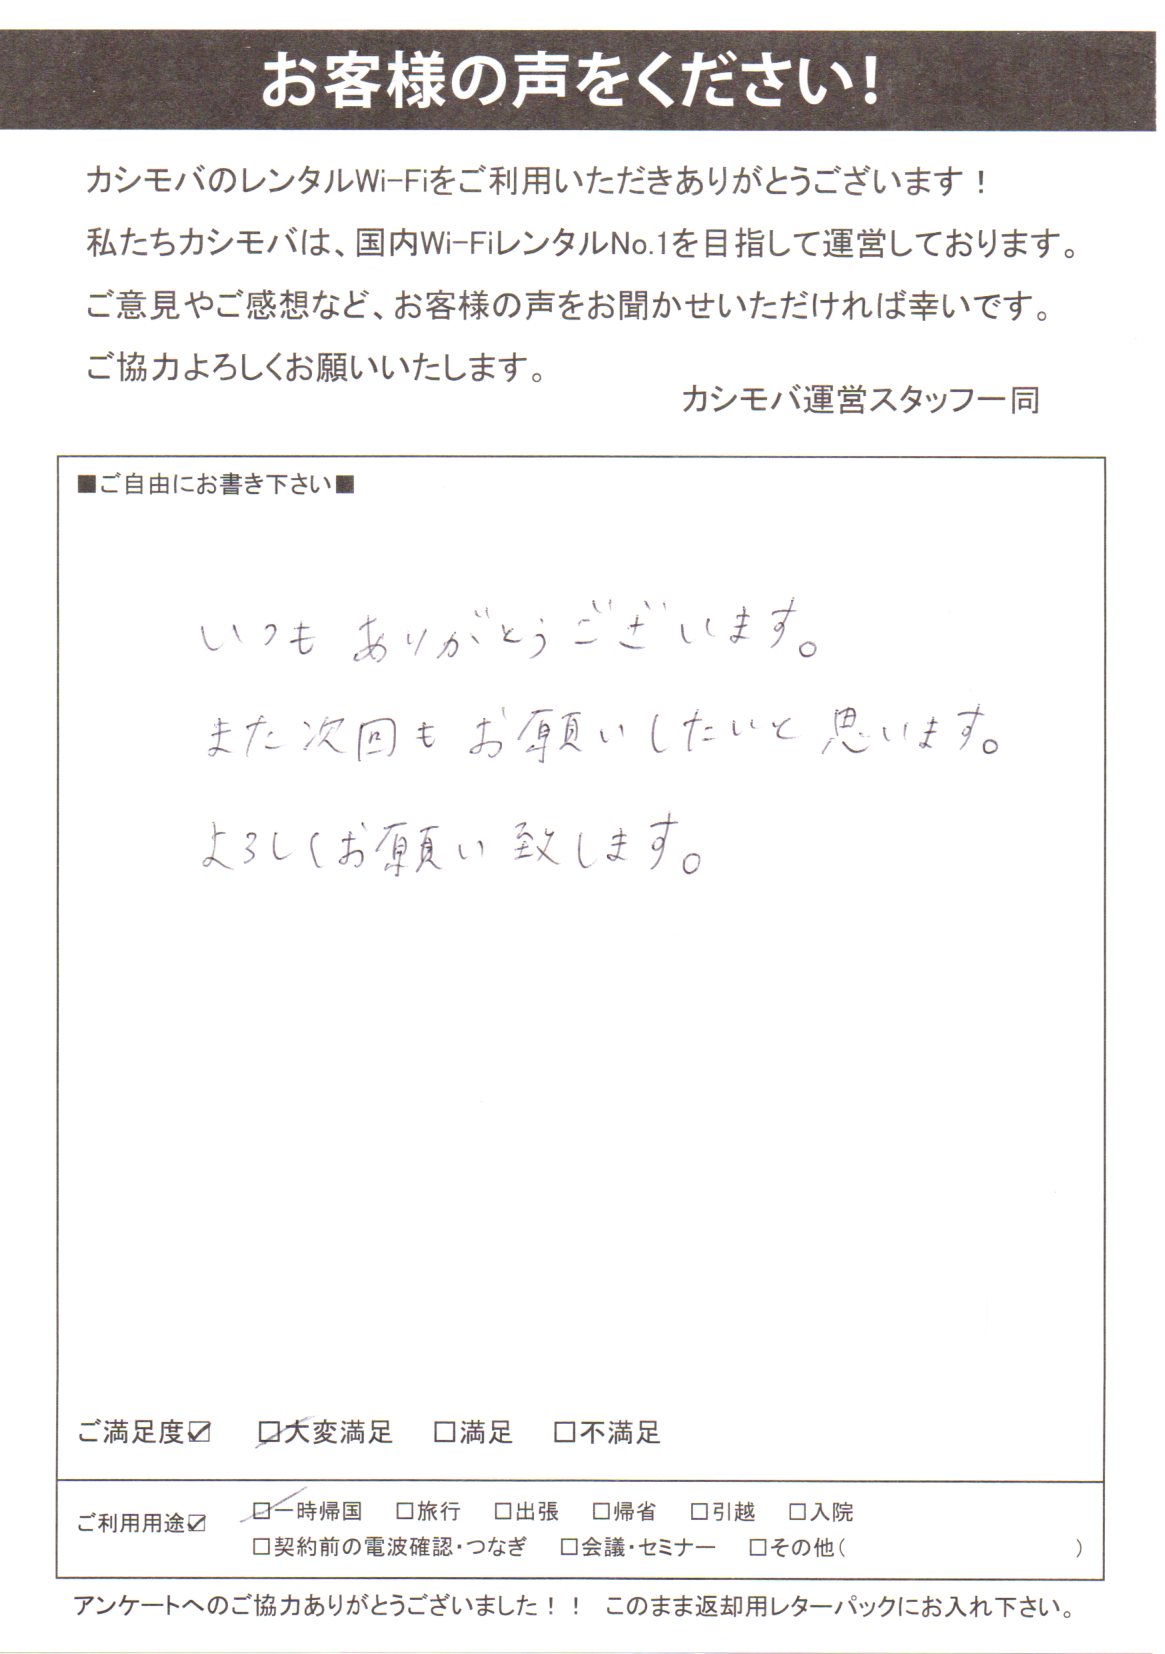 お客様の声をください!
カシモバのレンタルWi-Fiをご利用いただきありがとうございます！
私たちカシモバは、国内Wi-FiレンタルNo.1を目指して運営しております。
ご意見やご感想など、お客様の声をお聞かせいただければ幸いです。
ご協力よろしくお願いいたします。
カシモバ運営スタッフ一同
■ご自由にお書き下さい■
いつもありがとうございます。
また次回もお願いしたいと思います。
よろしくお願い致します。
ご満足度☑ □大変満足 □満足 □不満足
ご利用用途☑ □一時帰国 □旅行 □出張 □帰省 □引越 □入院
□契約前の電波確認・つなぎ □会議・セミナー □その他( )
アンケートへのご協力ありがとうございました！！ このまま返却用レターパックにお入れ下さい。